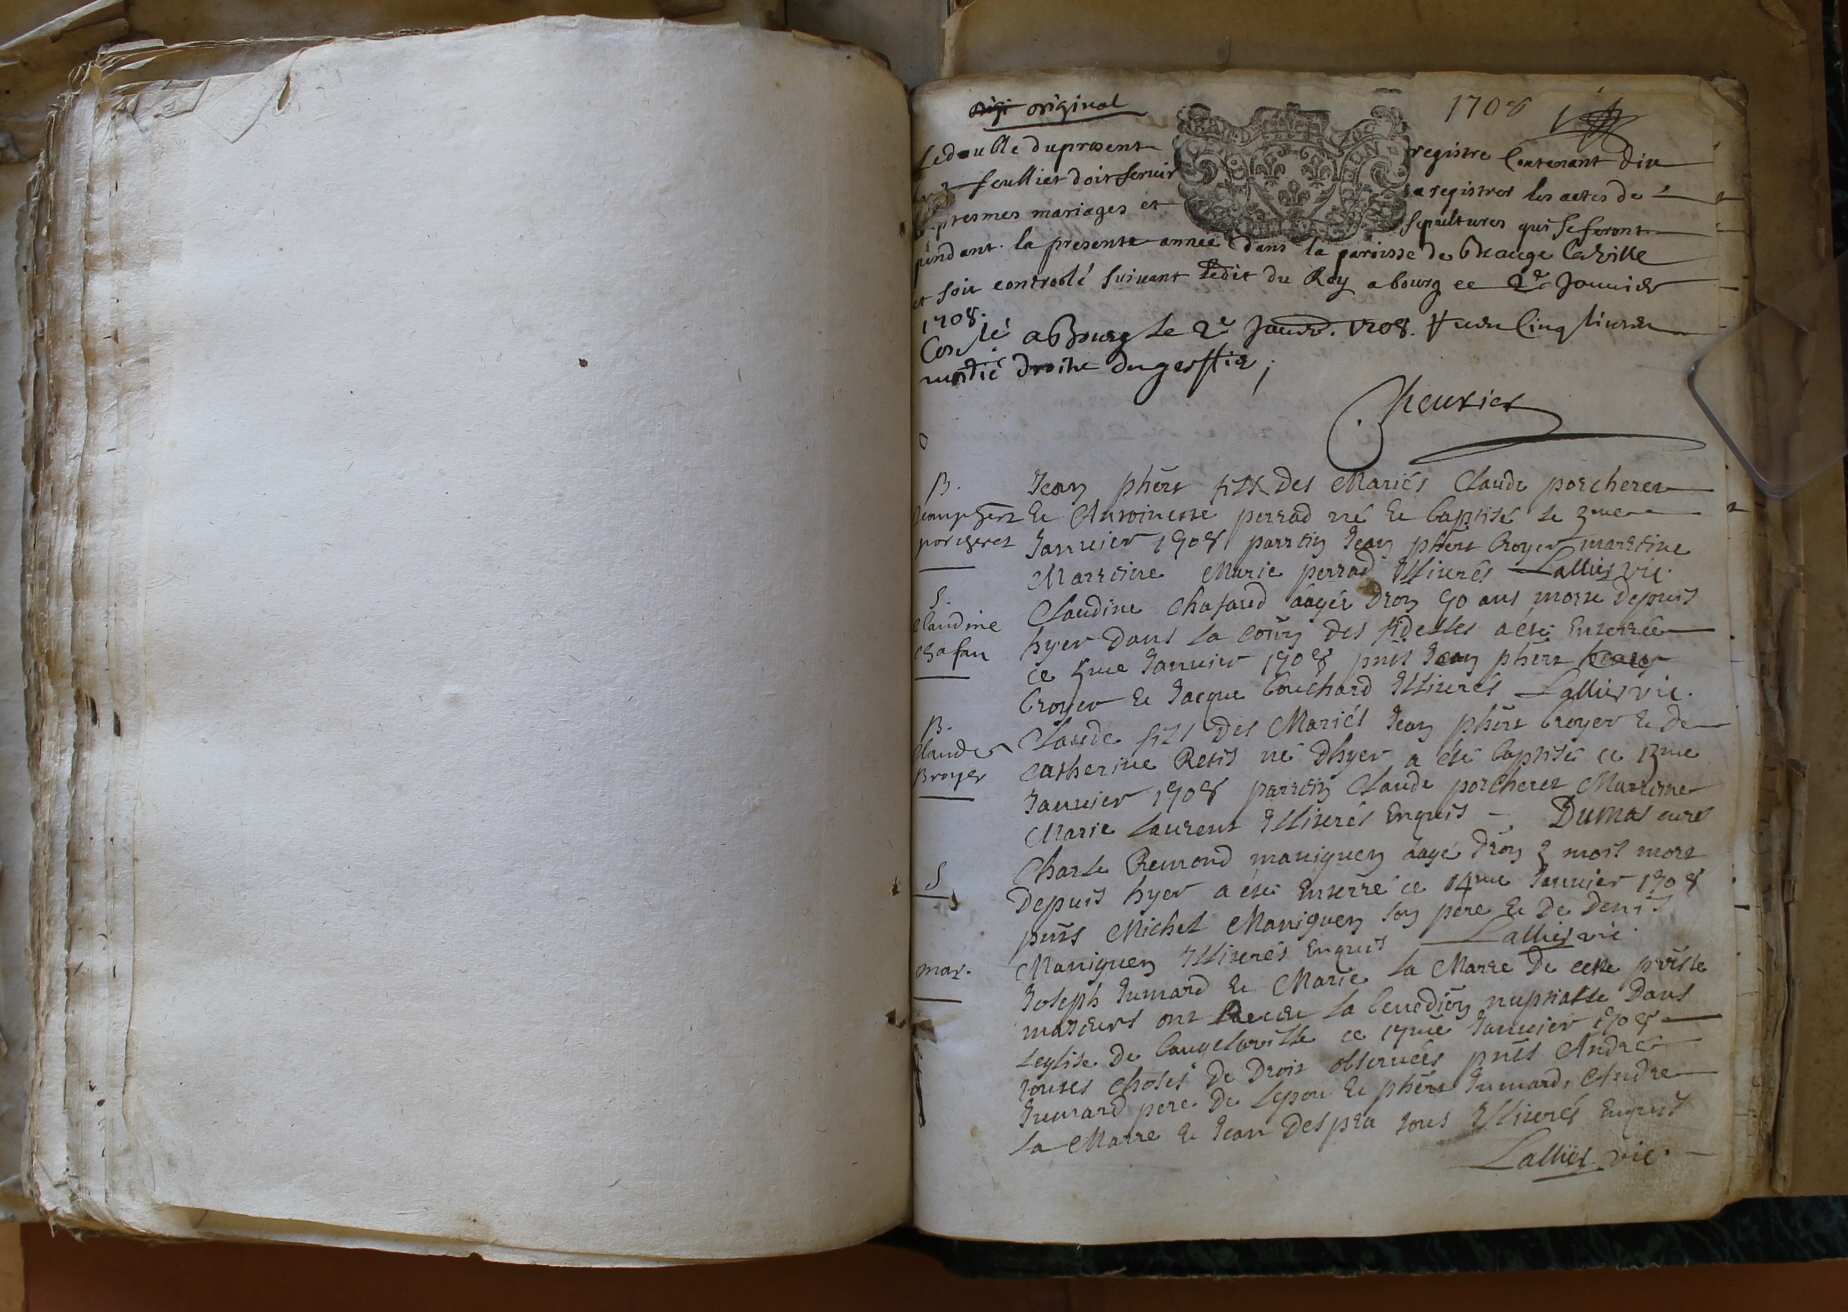 original
1708
Le double du present registre Contenant dix
feulliet doit servir a registrer les actes de
mariages et sepultures qui se feront
pendant la presente année dans la paroisse de
et soit controolé suivant Ledit du Roy a bourg ce 2e Janvier
1708.
a Bourg Le 2e Janvr. 1708. Cinq livres
moitié droitz du greffier
B.
porcheret
Jean phert fils des Mariés Claude porcheret
Et Antoinette perrad né Et baptisé le 3me
Janvier 1708 parrein Jean phert broyer marreine
Marreine Marie perrad Illiterés Lallier vic.
S.
Claudine
Chafau
Claudine Chafaud aagée dron 50 ans morte depuis
hyer dans la coñn des fidelles a eté Enterrée
ce 5me Janvier 1708 pnts Jean phert
broyer Et Jacque bouchard Illiterés Lallier vic.
B.
Claude
Broyer
Claude fils des Mariés Jean phert broyer Et de
Catherine Retis né dhyer a eté baptisé ce 13me
Janvier 1708 parrein Claude porcheret Marreine
Marie Laurent Illiterés Enquis Dumas curé
S
Charle Remond maniguen aagé dron 3 mois mort
Depuis hyer a eté Enterré ce 14me Janvier 1708
pnts Michel Maniguen son pere Et de Denis
Maniguen Illiterés Enquis Lallier vic.
mar.
Joseph Jumard Et Marie La Marre De cette
ont Receu la benedion nuptialle Dans
Leglise de ce 17me Janvier 1708
toutes choses de Droit observées pnts André
Jumard pere de Lepou Et phert Jumard, Andre
La Marre Et Jean Despra tous Illiterés Enquis
Lallier vic.